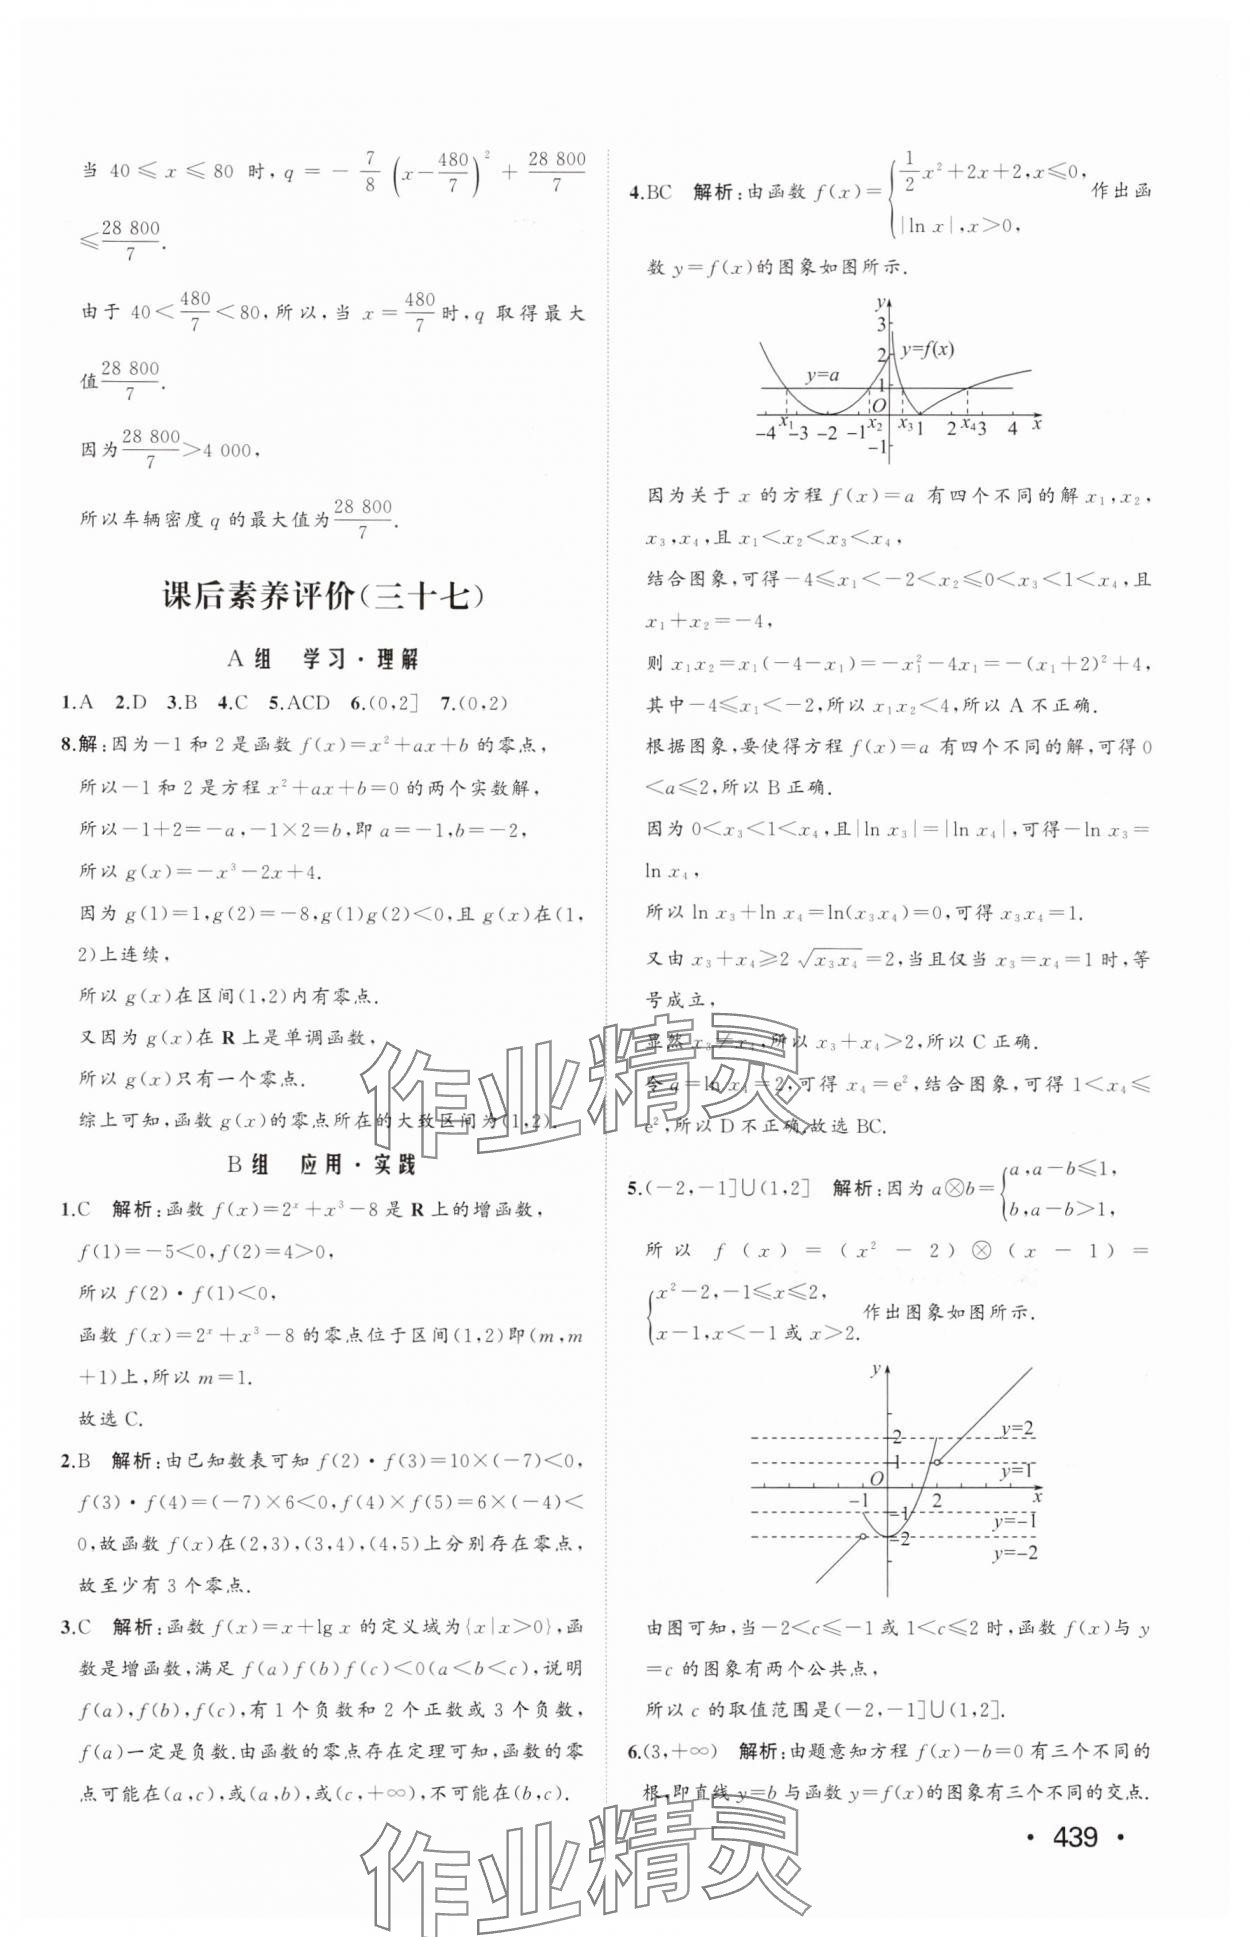 当 40≤x≤80 时,q=-7/8(x-480/7)²+28 800/7
≤28 800/7.
由于 40<480/7<80,所以,当 x=480/7时,q 取得最大
值28 800/7.
因为28 800/7>4 000,
所以车辆密度 q 的最大值为28 800/7.
课后素养评价(三十七)
A 组 学习·理解
1.A 2.D 3.B 4.C 5.ACD 6.(0,2] 7.(0,2)
8.解:因为-1 和 2 是函数 f(x)=x²+ax+b 的零点,
所以-1 和 2 是方程 x²+ax+b=0 的两个实数解,
所以-1+2=-a,-1×2=b,即 a=-1,b=-2,
所以 g(x)=-x³-2x+4.
因为 g(1)=1,g(2)=-8,g(1)g(2)<0,且 g(x)在(1,
2)上连续,
所以 g(x)在区间(1,2)内有零点.
又因为 g(x)在 R 上是单调函数,
所以 g(x)只有一个零点.
综上可知,函数 g(x)的零点所在的大致区间为(1,2).
B 组 应用·实践
1.C 解析:函数 f(x)=2ˣ+x³-8 是 R 上的增函数,
f(1)=-5<0,f(2)=4>0,
所以 f(2)·f(1)<0,
函数 f(x)=2ˣ+x³-8 的零点位于区间(1,2)即(m,m
+1)上,所以 m=1.
故选 C.
2.B 解析:由已知数表可知 f(2)·f(3)=10×(-7)<0,
f(3)·f(4)=(-7)×6<0,f(4)×f(5)=6×(-4)<
0,故函数 f(x)在(2,3),(3,4),(4,5)上分别存在零点,
故至少有 3 个零点.
3.C 解析:函数 f(x)=x+lg x 的定义域为{x|x>0},函
数是增函数,满足 f(a)f(b)f(c)<0(a<b<c),说明
f(a),f(b),f(c),有 1 个负数和 2 个正数或 3 个负数,
f(a)一定是负数.由函数的零点存在定理可知,函数的零
点可能在(a,c),或(a,b),或(c,+∞),不可能在(b,c).
4.BC 解析:由函数 f(x)={1/2x²+2x+2,x≤0, 作出函
|ln x|,x>0,
数 y=f(x)的图象如图所示.
y
3
2 y=f(x)
y=a 1
O
-4 x₁ -3 -2 -1 x₂ x₃ 1 2 x₄ 3 4 x
-1
因为关于 x 的方程 f(x)=a 有四个不同的解 x₁,x₂,
x₃,x₄,且 x₁<x₂<x₃<x₄,
结合图象,可得-4≤x₁<-2<x₂≤0<x₃<1<x₄,且
x₁+x₂=-4,
则 x₁x₂=x₁(-4-x₁)=-x₁²-4x₁=-(x₁+2)²+4,
其中-4≤x₁<-2,所以 x₁x₂<4,所以 A 不正确.
根据图象,要使得方程 f(x)=a 有四个不同的解,可得 0
<a≤2,所以 B 正确.
因为 0<x₃<1<x₄,且|ln x₃|=|ln x₄|,可得-ln x₃=
ln x₄,
所以 ln x₃+ln x₄=ln(x₃x₄)=0,可得 x₃x₄=1.
又由 x₃+x₄≥2√x₃x₄=2,当且仅当 x₃=x₄=1 时,等
号成立,
显然 x₃≠x₄,所以 x₃+x₄>2,所以 C 正确.
令 a=ln x₄=2,可得 x₄=e²,结合图象,可得 1<x₄≤
e²,所以 D 不正确.故选 BC.
5.(-2,-1]∪(1,2] 解析:因为 a⊗b={a,a-b≤1,
b,a-b>1,
所以 f(x)=(x²-2)⊗(x-1)=
{x²-2,-1≤x≤2, 作出图象如图所示.
x-1,x<-1 或 x>2.
y
2 y=2
1 y=1
O
-1 2 x
y=-1
-2 y=-2
由图可知,当-2<c≤-1 或 1<c≤2 时,函数 f(x)与 y
=c 的图象有两个公共点,
所以 c 的取值范围是(-2,-1]∪(1,2].
6.(3,+∞) 解析:由题意知方程 f(x)-b=0 有三个不同的
根,即直线 y=b 与函数 y=f(x)的图象有三个不同的交点.
· 439 ·
作业精灵
作业精灵